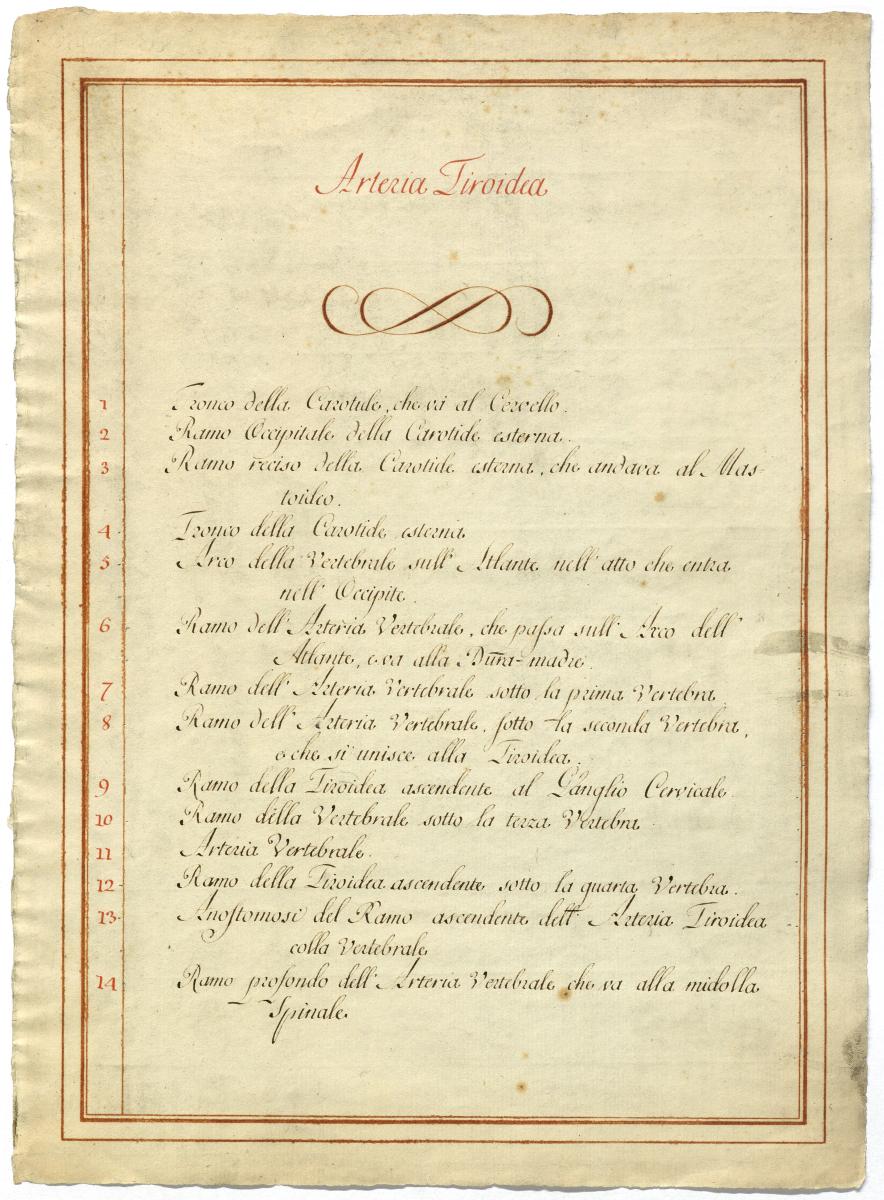 Arteria Tiroidea
1 Tronco della Carotide, che va al Cervello.
2 Ramo Occipitale della Carotide esterna.
3 Ramo reciso della Carotide esterna, che andava al Mas-
toideo.
4 Tronco della Carotide esterna
5 Arco della Vertebrale sull' Atlante nell' atto che entra
nell' Occipite.
6 Ramo dell' Arteria Vertebrale, che paſsa sull' Arco dell'
Atlante, e va alla Dura-madre.
7 Ramo dell' Arteria Vertebrale sotto la prima Vertebra
8 Ramo dell' Arteria Vertebrale, ſotto la seconda Vertebra,
e che si unisce alla Tiroidea.
9 Ramo della Tiroidea ascendente al Ganglio Cervicale.
10 Ramo della Vertebrale sotto la terza Vertebra
11 Arteria Vertebrale.
12 Ramo della Tiroidea ascendente sotto la quarta Vertebra.
13 Anoſtomosi del Ramo ascendente dell' Arteria Tiroidea
colla Vertebrale
14 Ramo profondo dell' Arteria Vertebrale che va alla midolla
Spinale